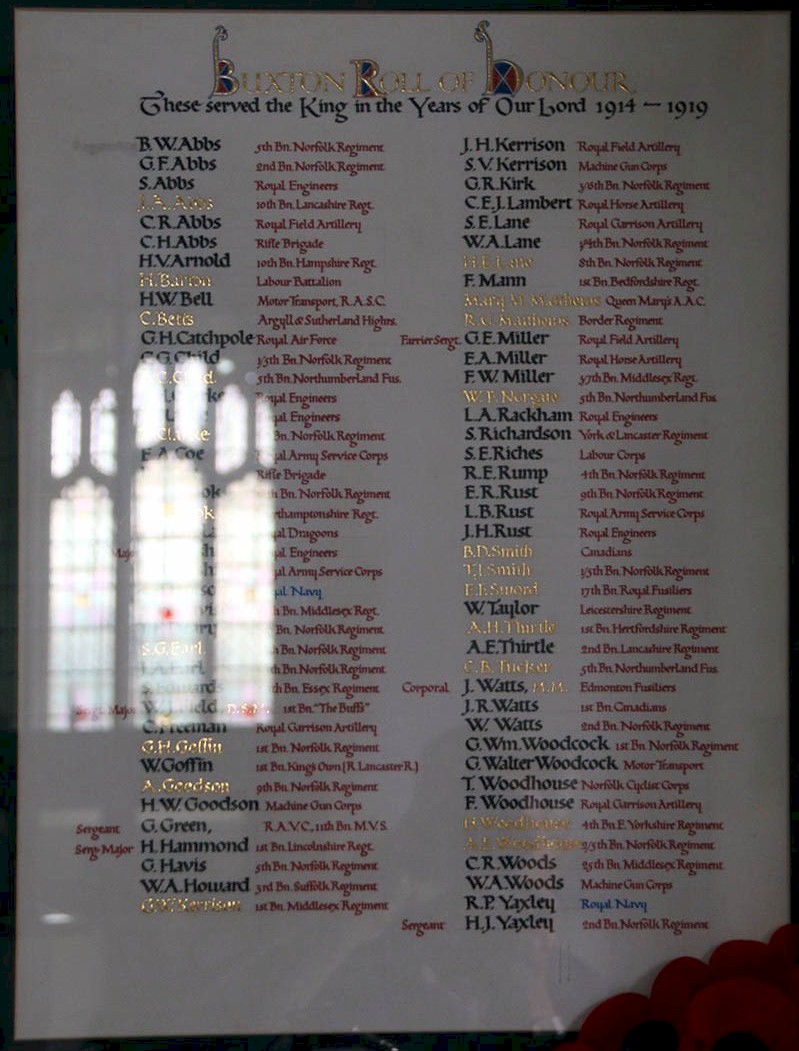 Buxton Roll of Honour
These served the King in the Years of Our Lord 1914 — 1919
B.W.Abbs 5th Bn. Norfolk Regiment
G.F.Abbs 2nd Bn. Norfolk Regiment
S.Abbs Royal Engineers
J.A.Abbs 10th Bn. Lancashire Regt.
C.R.Abbs Royal Field Artillery
C.H.Abbs Rifle Brigade
H.V.Arnold 10th Bn. Hampshire Regt.
H.Barton Labour Battalion
H.W.Bell Motor Transport, R.A.S.C.
C.Betts Argyll & Sutherland Highrs.
G.H.Catchpole Royal Air Force
C.G.Child 1/5th Bn. Norfolk Regiment
5th Bn. Northumberland Fus.
Engineers
Engineers
Bn. Norfolk Regiment
F.A.Coe Army Service Corps
Rifle Brigade
Bn. Norfolk Regiment
Regt.
Dragoons
Major Engineers
Army Service Corps
Navy
Bn. Middlesex Regt.
Bn. Norfolk Regiment
S.G.Earl. Bn. Norfolk Regiment
Bn. Norfolk Regiment
S.Edwards Bn. Essex Regiment
Sergt. Major W.J.Field, D.S.M. 1st Bn. "The Buffs"
C.Freeman Royal Garrison Artillery
G.H.Goffin 1st Bn. Norfolk Regiment
W.Goffin 1st Bn. King's Own (R. Lancaster R.)
A.Goodson 9th Bn. Norfolk Regiment
H.W.Goodson Machine Gun Corps
Sergeant G.Green, R.A.V.C, 11th Bn. M.V.S.
Serg-Major H.Hammond 1st Bn. Lincolnshire Regt.
G.Havis 5th Bn. Norfolk Regiment
W.A.Howard 3rd Bn. Suffolk Regiment
G.V.Kerrison 1st Bn. Middlesex Regiment
J.H.Kerrison Royal Field Artillery
S.V.Kerrison Machine Gun Corps
G.R.Kirk 3/6th Bn. Norfolk Regiment
C.E.J.Lambert Royal Horse Artillery
S.E.Lane Royal Garrison Artillery
W.A.Lane Bn. Norfolk Regiment
H.E.Lane 8th Bn. Norfolk Regiment
F.Mann 1st Bn. Bedfordshire Regt.
Mary M.Matthews Queen Mary's A.A.C.
R.G.Matthews Border Regiment
Farrier Sergt. G.E.Miller Royal Field Artillery
E.A.Miller Royal Horse Artillery
F.W.Miller 3/7th Bn. Middlesex Regt.
W.T.Norgate 5th Bn. Northumberland Fus.
L.A.Rackham Royal Engineers
S.Richardson York & Lancaster Regiment
S.E.Riches Labour Corps
R.E.Rump 4th Bn. Norfolk Regiment
E.R.Rust 9th Bn. Norfolk Regiment
L.B.Rust Royal Army Service Corps
J.H.Rust Royal Engineers
B.D.Smith Canadians
T.J.Smith 1/5th Bn. Norfolk Regiment
F.F.Sword 17th Bn. Royal Fusiliers
W.Taylor Leicestershire Regiment
A.H.Thirtle 1st Bn. Hertfordshire Regiment
A.E.Thirtle 2nd Bn. Lancashire Regiment
C.B.Tucker 5th Bn. Northumberland Fus.
Corporal J.Watts, M.M. Edmonton Fusiliers
J.R.Watts 1st Bn. Canadians
W. Watts 2nd Bn. Norfolk Regiment
G.Wm.Woodcock 1st Bn. Norfolk Regiment
G.Walter Woodcock Motor Transport
T. Woodhouse Norfolk Cyclist Corps
F. Woodhouse Royal Garrison Artillery
H.Woodhouse 4th Bn. E. Yorkshire Regiment
A.E.Woodhouse 2/5th Bn. Norfolk Regiment
C.R.Woods 25th Bn. Middlesex Regiment
W.A.Woods Machine Gun Corps
R.P.Yaxley Royal Navy
Sergeant H.J.Yaxley 2nd Bn. Norfolk Regiment